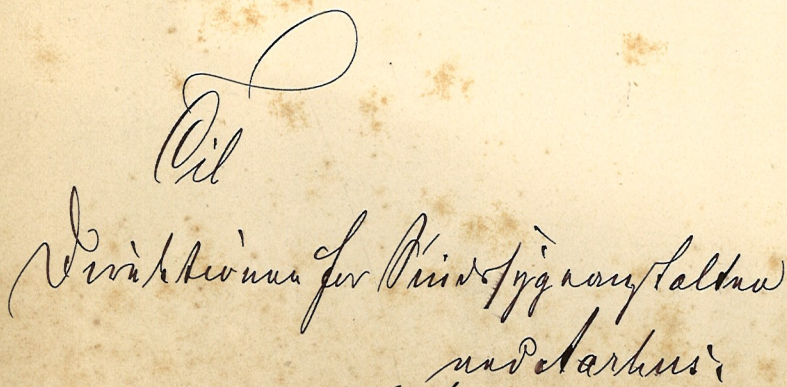 Til
Direktionen for Sindssygeanstalten
ved Aarhus.